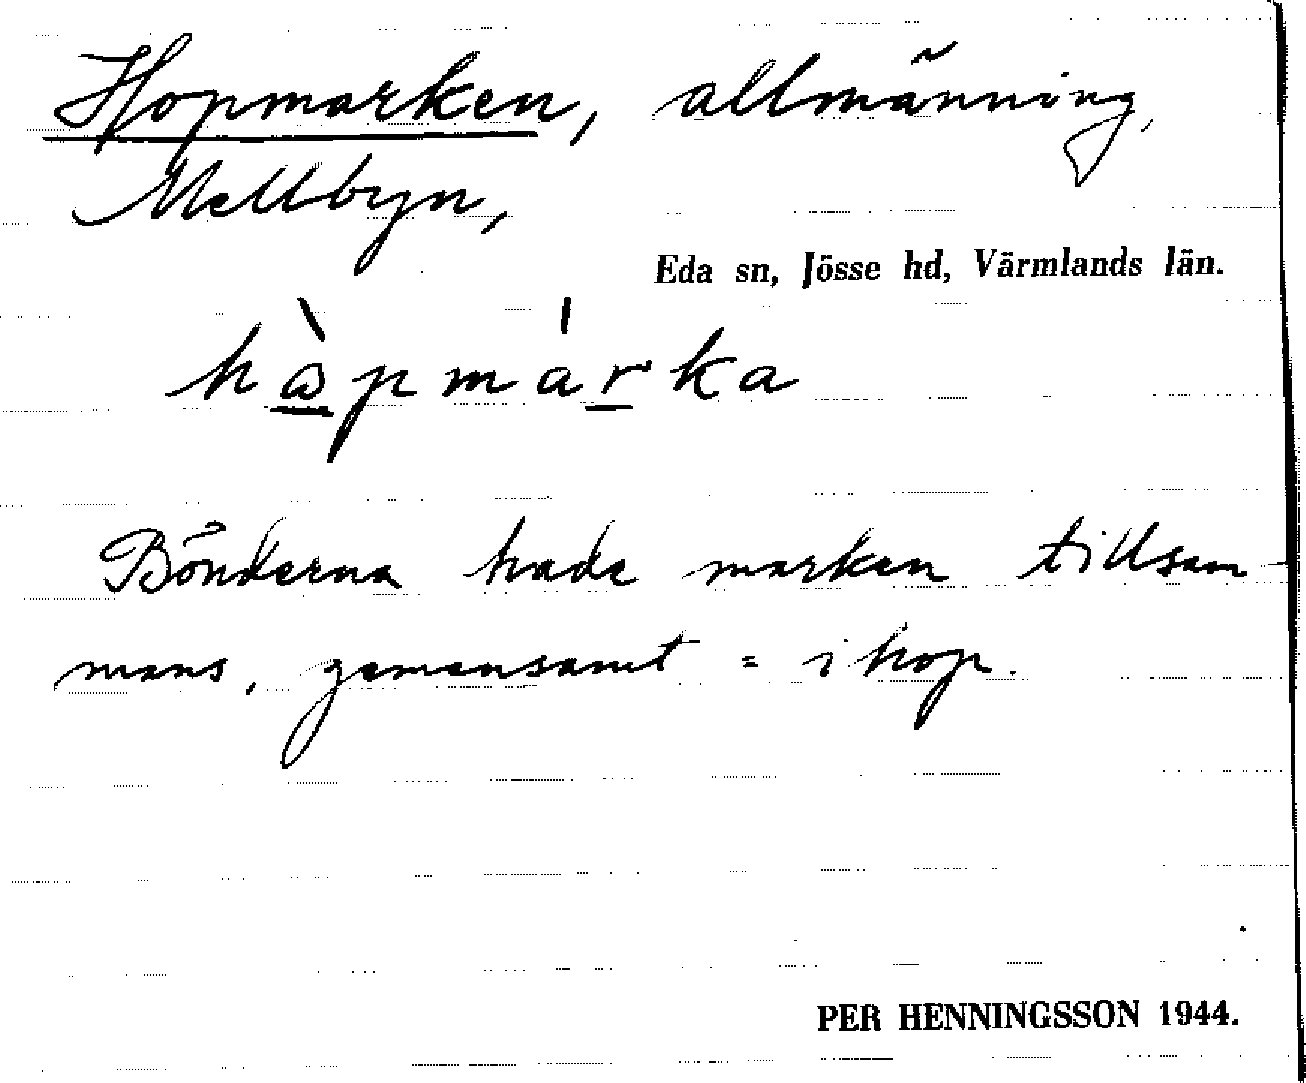 Hopmarken, allmänning,
Mellbyn,
Eda sn, Jösse hd, Värmlands län.
hàpmárka
Bönderna hade marken tillsam
mans, gemensamt = i hop.
PER HENNINGSSON 1944.